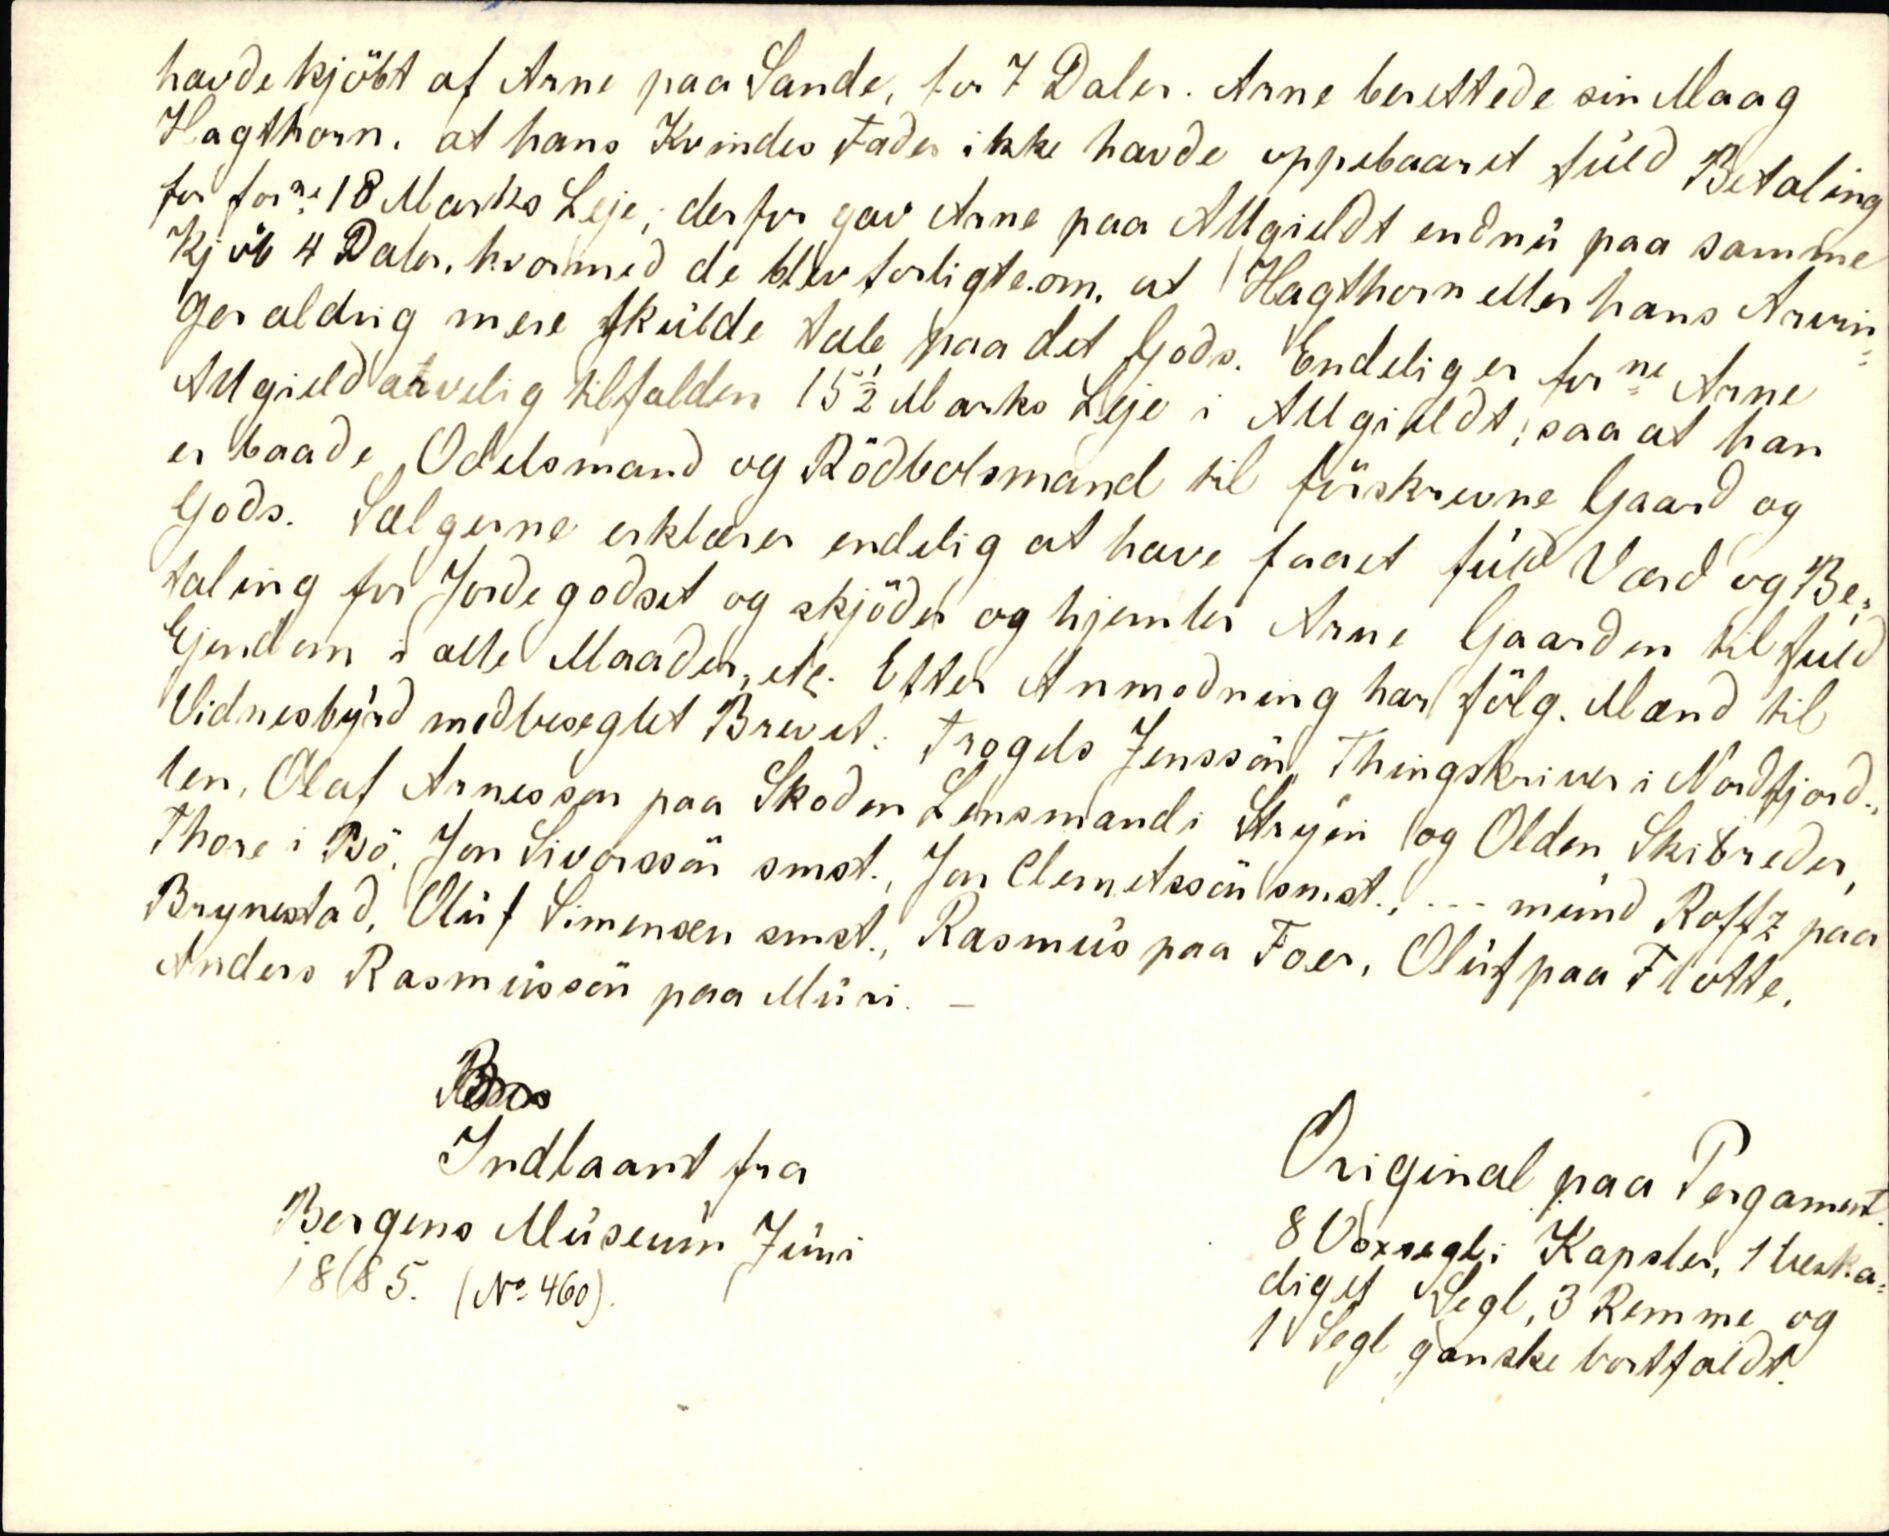 havde kjöbt af Arne paa Sande, for 7 Daler. Arne berettede sin Maag
Hagthorn, at hans Kvindes Fader ikke havde oppebaaret fuld Betaling
for forne 18 Marks Leje, derfor gav Arne paa Allgieldt endnu paa samme
Kjöb 4 Daler, hvormed de blev forligte om, at Hagthorn eller hans Arvin-
ger aldrig mere skulde tale paa det Gods. Endelig er forne Arne
Allgield arvelig tilfalden 15½ Marks Leje i Allgieldt, saa at han
er baade Odelsmand og Rödbolsmand til förskrevne Gaard og
Gods. Sælgerne erklærer endelig at have faaet fuld Værd og Be-
taling for Jordegodset og skjöder og hjemler Arne Gaarden til fuld
Ejendom i alle Maader, etc. Efter Anmodning har fölg. Mænd til
Vidnesbyrd medbeseglet Brevet: Trogels Jenssön, Thingskriver i Nordfjord.,
len, Olaf Arnessen paa Skoden Lensmand i Stryen og Olden Skibreder,
Thore i Bö, Jon Sivorssön smst., Jon Clemetssön smst., --- mund Roffz paa
Brynestad, Oluf Simensen smst., Rasmus paa Foer, Oluf paa Flotte,
Anders Rasmussön paa Muri. –
Indlaant fra
Bergens Museum Juni
1885. (No 460).
Original paa Pergament.
8 Voxsegl i Kapsler, 1 beska-
diget Segl, 3 Remme og
1 Segl ganske bortfaldt.